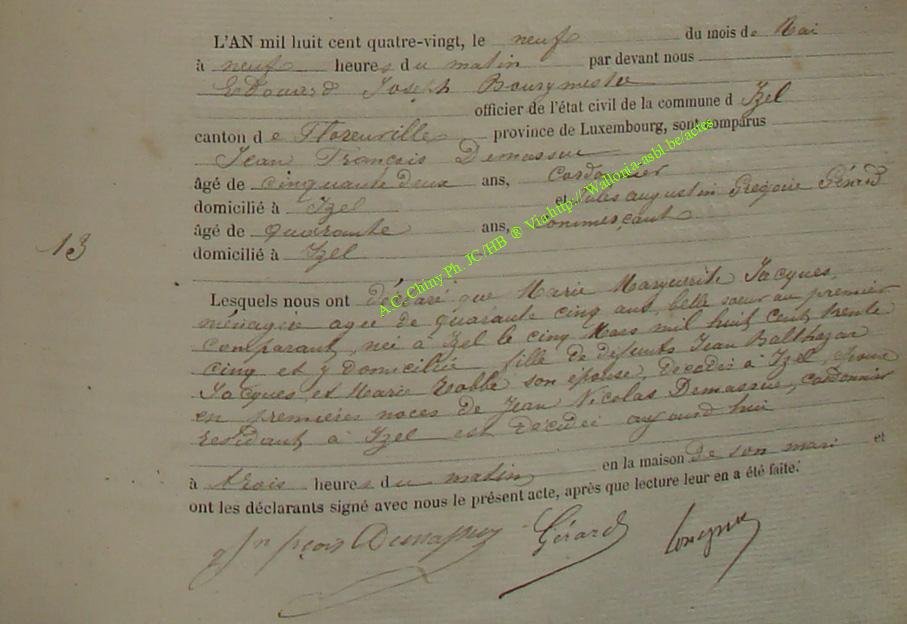 L'AN mil huit cent quatre-vingt, le neuf du mois de Mai
à neuf heures du matin par devant nous
Edouard Joseph Bourgmestre
officier de l'état civil de la commune d Izel
canton de Florenville province de Luxembourg, sont comparus
Jean François Demasseu
âgé de cinquante deux ans, Cordonnier
domicilié à Izel et Jules augustin Grégoire Gérard
âgé de quarante ans, Commerçant
domicilié à Izel
13
Lesquels nous ont déclaré que Marie Marguerite Jacques,
ménagère agée de quarante cinq ans, belle sœur au premier
comparant, née à Izel le cinq Mars mil huit cent trente
cinq et y domiciliée fille de défunts Jean Balthazar
Jacques et Marie son épouse, décédés à Izel, épouse
en premières noces de Jean Nicolas Demasseu, cordonnier
résidant à Izel est décédée aujourd'hui
à trois heures du matin en la maison de son mari et
ont les déclarants signé avec nous le présent acte, après que lecture leur en a été faite.
Gérard
A.C. Chiny Ph. JC/HB ® Via http://Wallonia-asbl.be/actes